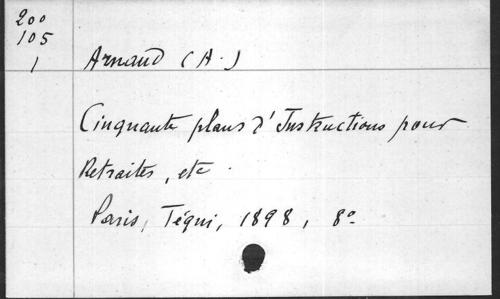 200
105
1
Arnaud (A.)
Cinquante plans d'Instructions pour
Retraites, etc.
Paris, Téqui, 1898, 8°